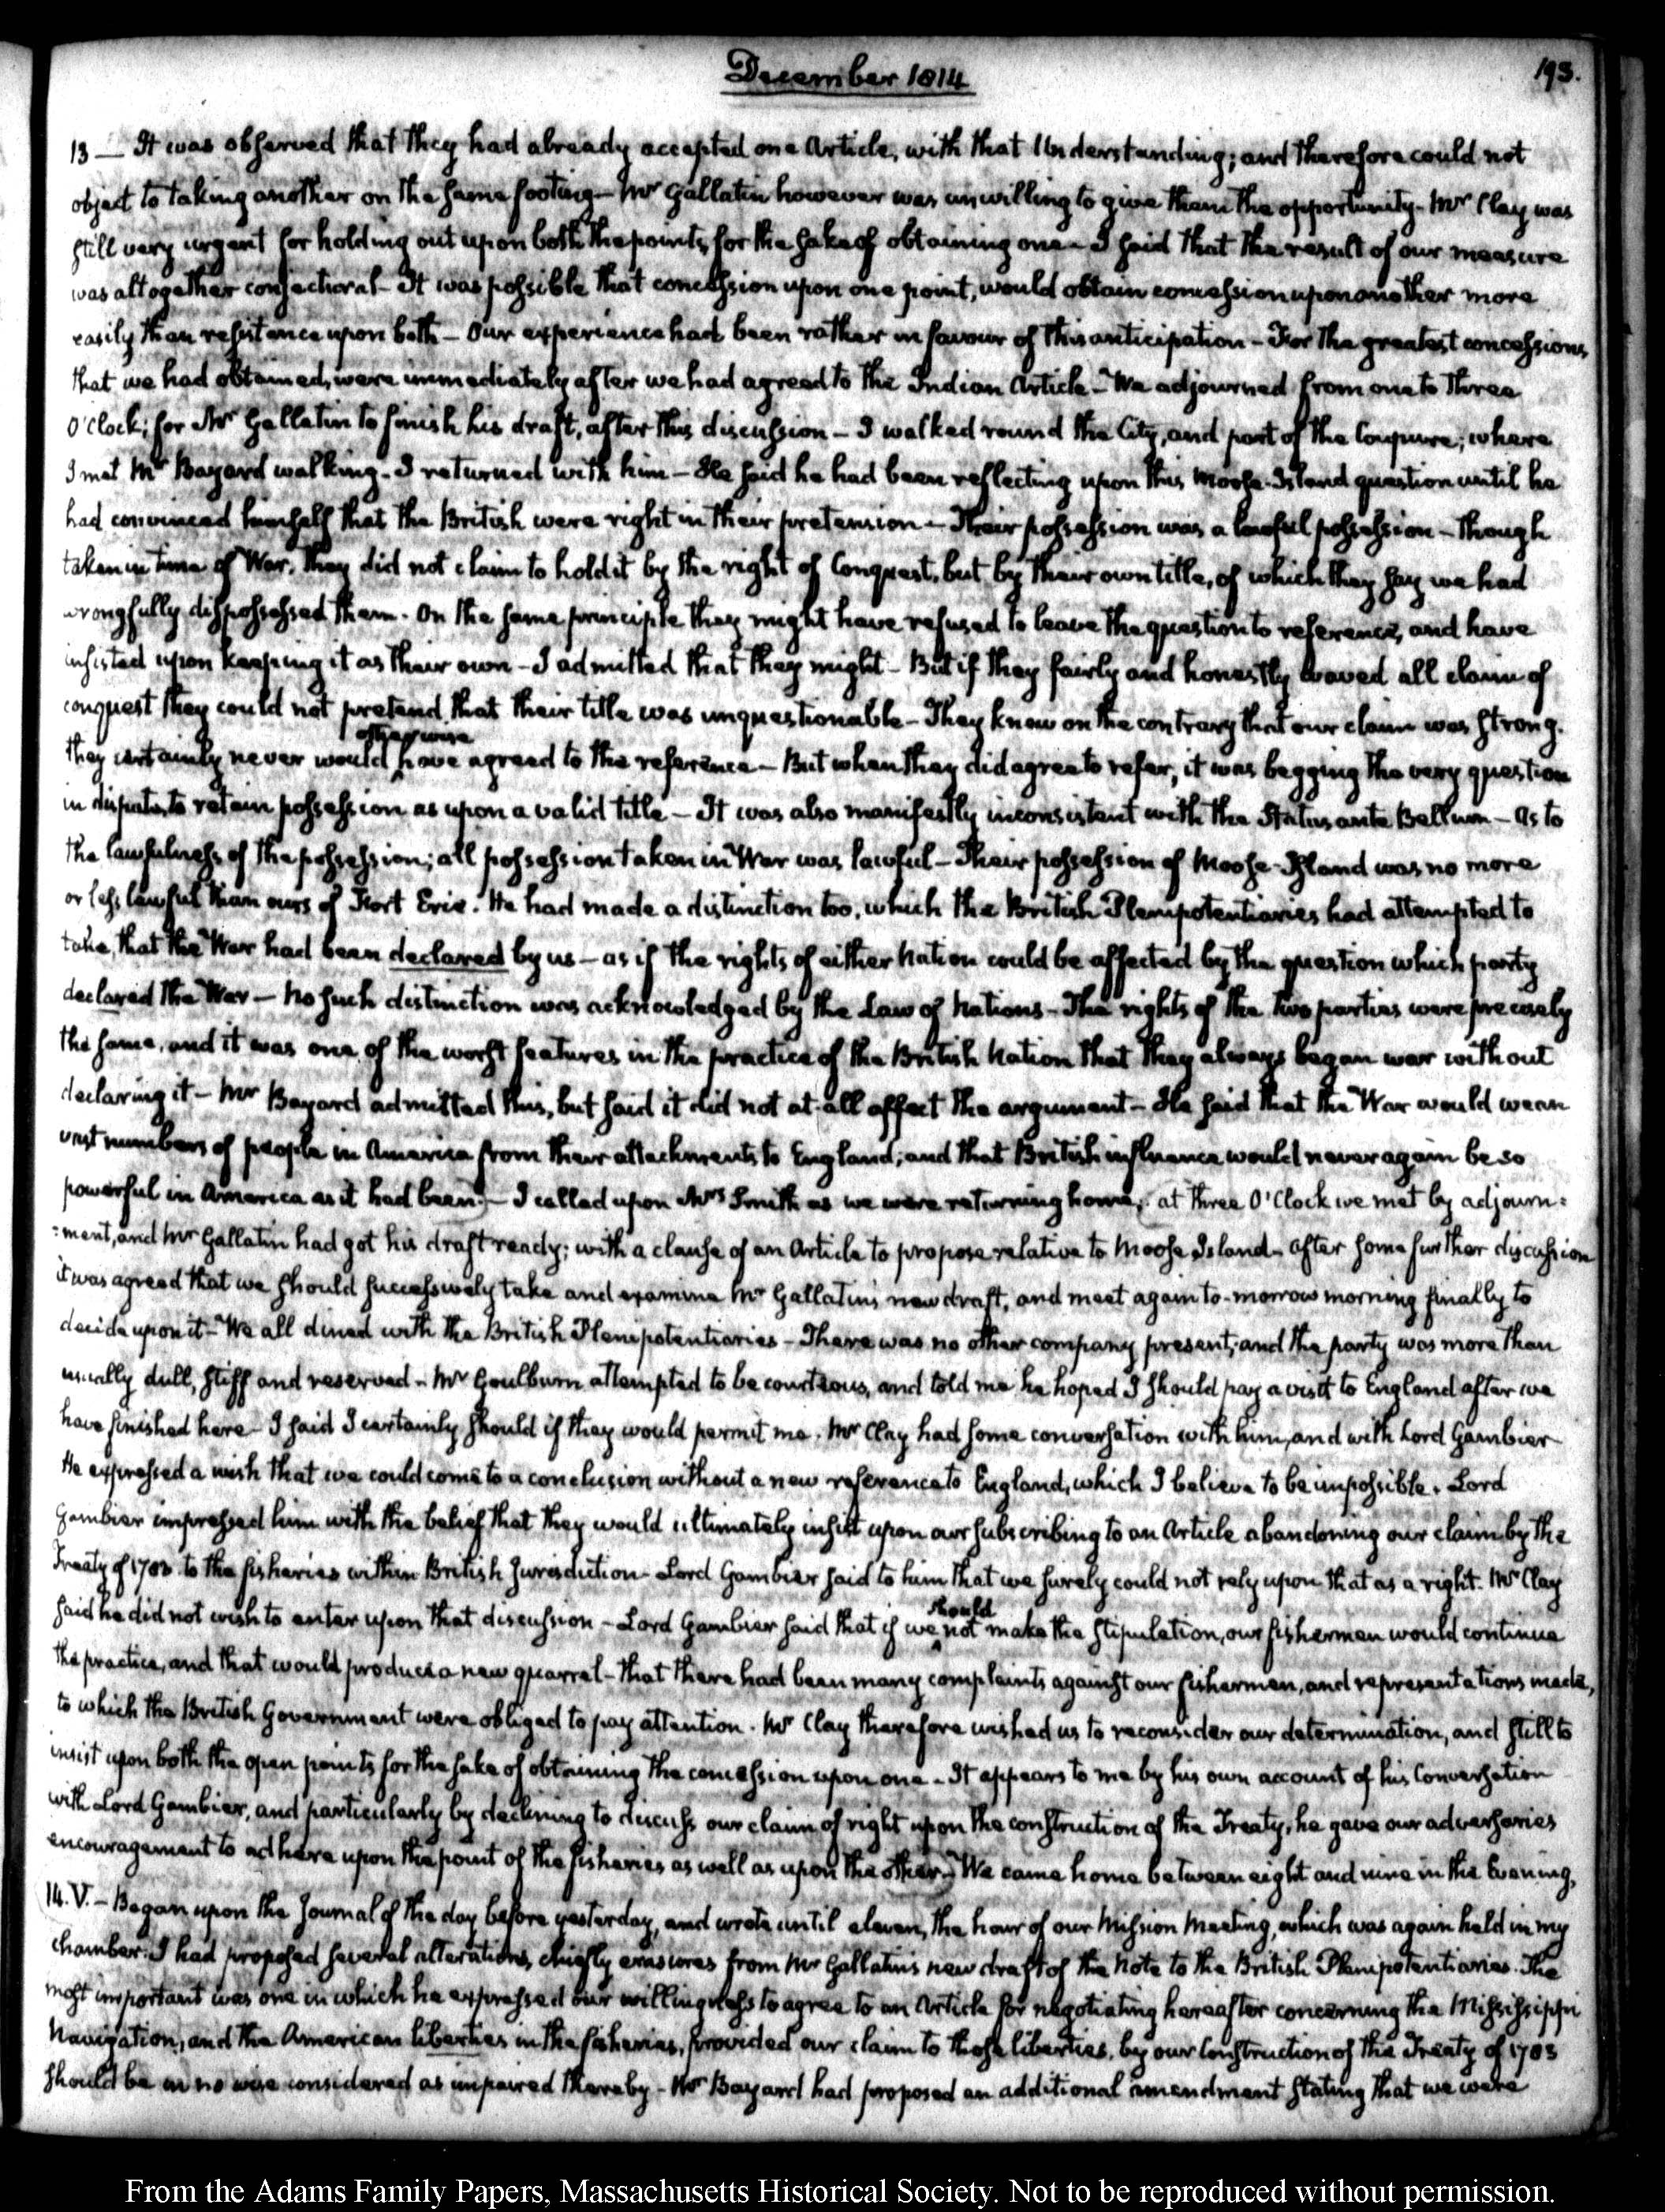 December 1814
193.
13 — It was observed that they had already accepted one Article, with that Understanding; and therefore could not
object to taking another on the same footing — Mr Gallatin however was unwilling to give them the opportunity — Mr Clay was
still very urgent for holding out upon both the points, for the sake of obtaining one — I said that the result of our measure
was altogether conjectural — It was possible that concession upon one point, would obtain concession upon another more
easily than resistance upon both — Our experience had been rather in favour of this anticipation — For the greatest concessions,
that we had obtained, were immediately after we had agreed to the Indian Article — We adjourned from one to three
O'Clock; for Mr Gallatin to finish his draft, after this discussion — I walked round the City, and part of the Coupure; where
I met Mr Bayard walking. I returned with him — He said he had been reflecting upon this Moose-Island question until he
had convinced himself that the British were right in their pretension — Their possession was a lawful possession — though
taken in time of War, they did not claim to hold it by the right of Conquest, but by their own title, of which they say we had
wrongfully dispossessed them. On the same principle they might have refused to leave the question to reference, and have
insisted upon keeping it as their own — I admitted that they might — But if they fairly and honestly waved all claim of
conquest they could not pretend that their title was unquestionable — They knew on the contrary that our claim was strong.
they certainly never would otherwise have agreed to the reference — But when they did agree to refer, it was begging the very question
in dispute, to retain possession as upon a valid title — It was also manifestly inconsistent with the Status ante Bellum — As to
the lawfulness of the possession; all possession taken in War was lawful — Their possession of Moose-Island was no more
or less lawful than ours of Fort Erie. He had made a distinction too, which the British Plenipotentiaries had attempted to
take, that the War had been declared by us — as if the rights of either Nation could be affected by the question which party
declared the War — No such distinction was acknowledged by the Law of Nations — The rights of the two parties were precisely
the same, and it was one of the worst features in the practice of the British Nation that they always began war without
declaring it — Mr Bayard admitted this, but said it did not at all affect the argument — He said that the War would wean
vast numbers of people in America from their attachments to England; and that British influence would never again be so
powerful in America as it had been. — I called upon Mrs Smith as we were returning home; at three O'Clock we met by adjourn=
=ment, and Mr Gallatin had got his draft ready; with a clause of an Article to propose relative to Moose Island — After some further discussion
it was agreed that we should successively take and examine Mr Gallatin's new draft, and meet again to-morrow morning finally to
decide upon it — We all dined with the British Plenipotentiaries — There was no other company present; and the party was more than
usually dull, stiff and reserved — Mr Goulburn attempted to be courteous, and told me he hoped I should pay a visit to England after we
have finished here — I said I certainly should if they would permit me. Mr Clay had some conversation with him, and with Lord Gambier
He expressed a wish that we could come to a conclusion without a new reference to England, which I believe to be impossible. Lord
Gambier impressed him with the belief that they would ultimately insist upon our subscribing to an Article abandoning our claim by the
Treaty of 1783 to the fisheries within British Jurisdiction — Lord Gambier said to him that we surely could not rely upon that as a right. Mr Clay
said he did not wish to enter upon that discussion — Lord Gambier said that if we should not make the stipulation, our fishermen would continue
the practice, and that would produce a new quarrel — that there had been many complaints against our fishermen, and representations made,
to which the British Government were obliged to pay attention. Mr Clay therefore wished us to reconsider our determination, and still to
insist upon both the open points for the sake of obtaining the concession upon one — It appears to me by his own account of his Conversation
with Lord Gambier, and particularly by declining to discuss our claim of right upon the construction of the Treaty, he gave our adversaries
encouragement to adhere upon the point of the fisheries as well as upon the other — We came home between eight and nine in the Evening.
14. V. — Began upon the Journal of the day before yesterday, and wrote until eleven, the hour of our Mission Meeting, which was again held in my
chamber. I had proposed several alterations, chiefly erasures from Mr Gallatin's new draft of the Note to the British Plenipotentiaries. The
most important was one in which he expressed our willingness to agree to an Article for negotiating hereafter concerning the Mississippi
Navigation, and the American liberties in the fisheries, provided our claim to those liberties, by our construction of the Treaty of 1783
should be in no wise considered as impaired thereby — Mr Bayard had proposed an additional amendment stating that we were
From the Adams Family Papers, Massachusetts Historical Society. Not to be reproduced without permission.